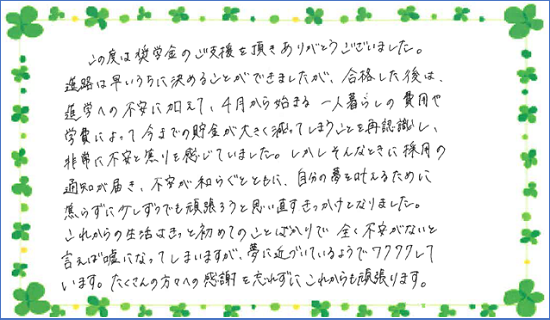 この度は奨学金のご支援を頂きありがとうございました。
進路は早いうちに決めることができましたが、合格した後は、
進学への不安に加えて、4月から始まる一人暮らしの費用や
学費によって今までの貯金が大きく減ってしまうことを再認識し、
非常に不安と焦りを感じていました。しかしそんなときに採用の
通知が届き、不安が和らぐとともに、自分の夢を叶えるために
焦らずに少しずつでも頑張ろうと思い直すきっかけとなりました。
これからの生活はきっと初めてのことばかりで全く不安がないと
言えば嘘になってしまいますが、夢に近づいているようでワクワクして
います。たくさんの方々への感謝を忘れずにこれからも頑張ります。